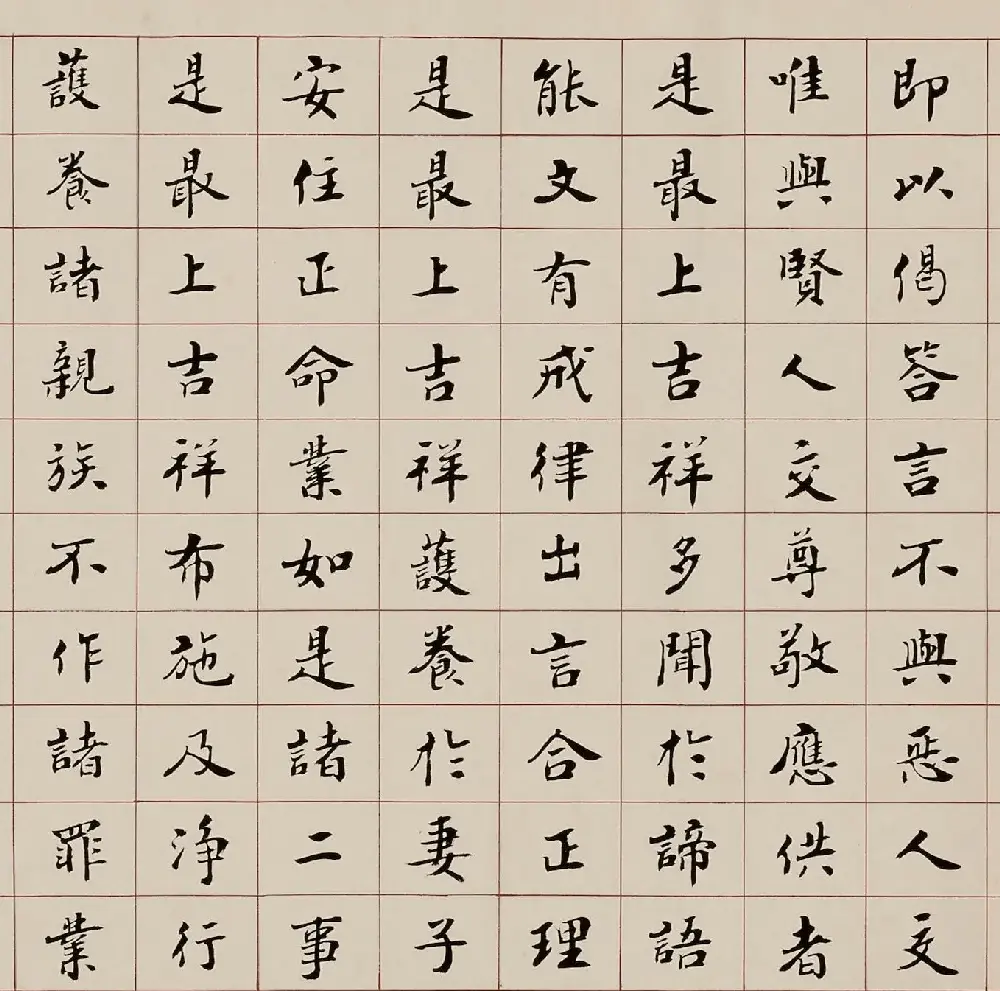 即以偈答言不與惡人交
唯與賢人交尊敬應供者
是最上吉祥多聞於諦語
能文有戒律出言合正理
是最上吉祥護養於妻子
安住正命業如是諸二事
是最上吉祥布施及淨行
護養諸親族不作諸罪業